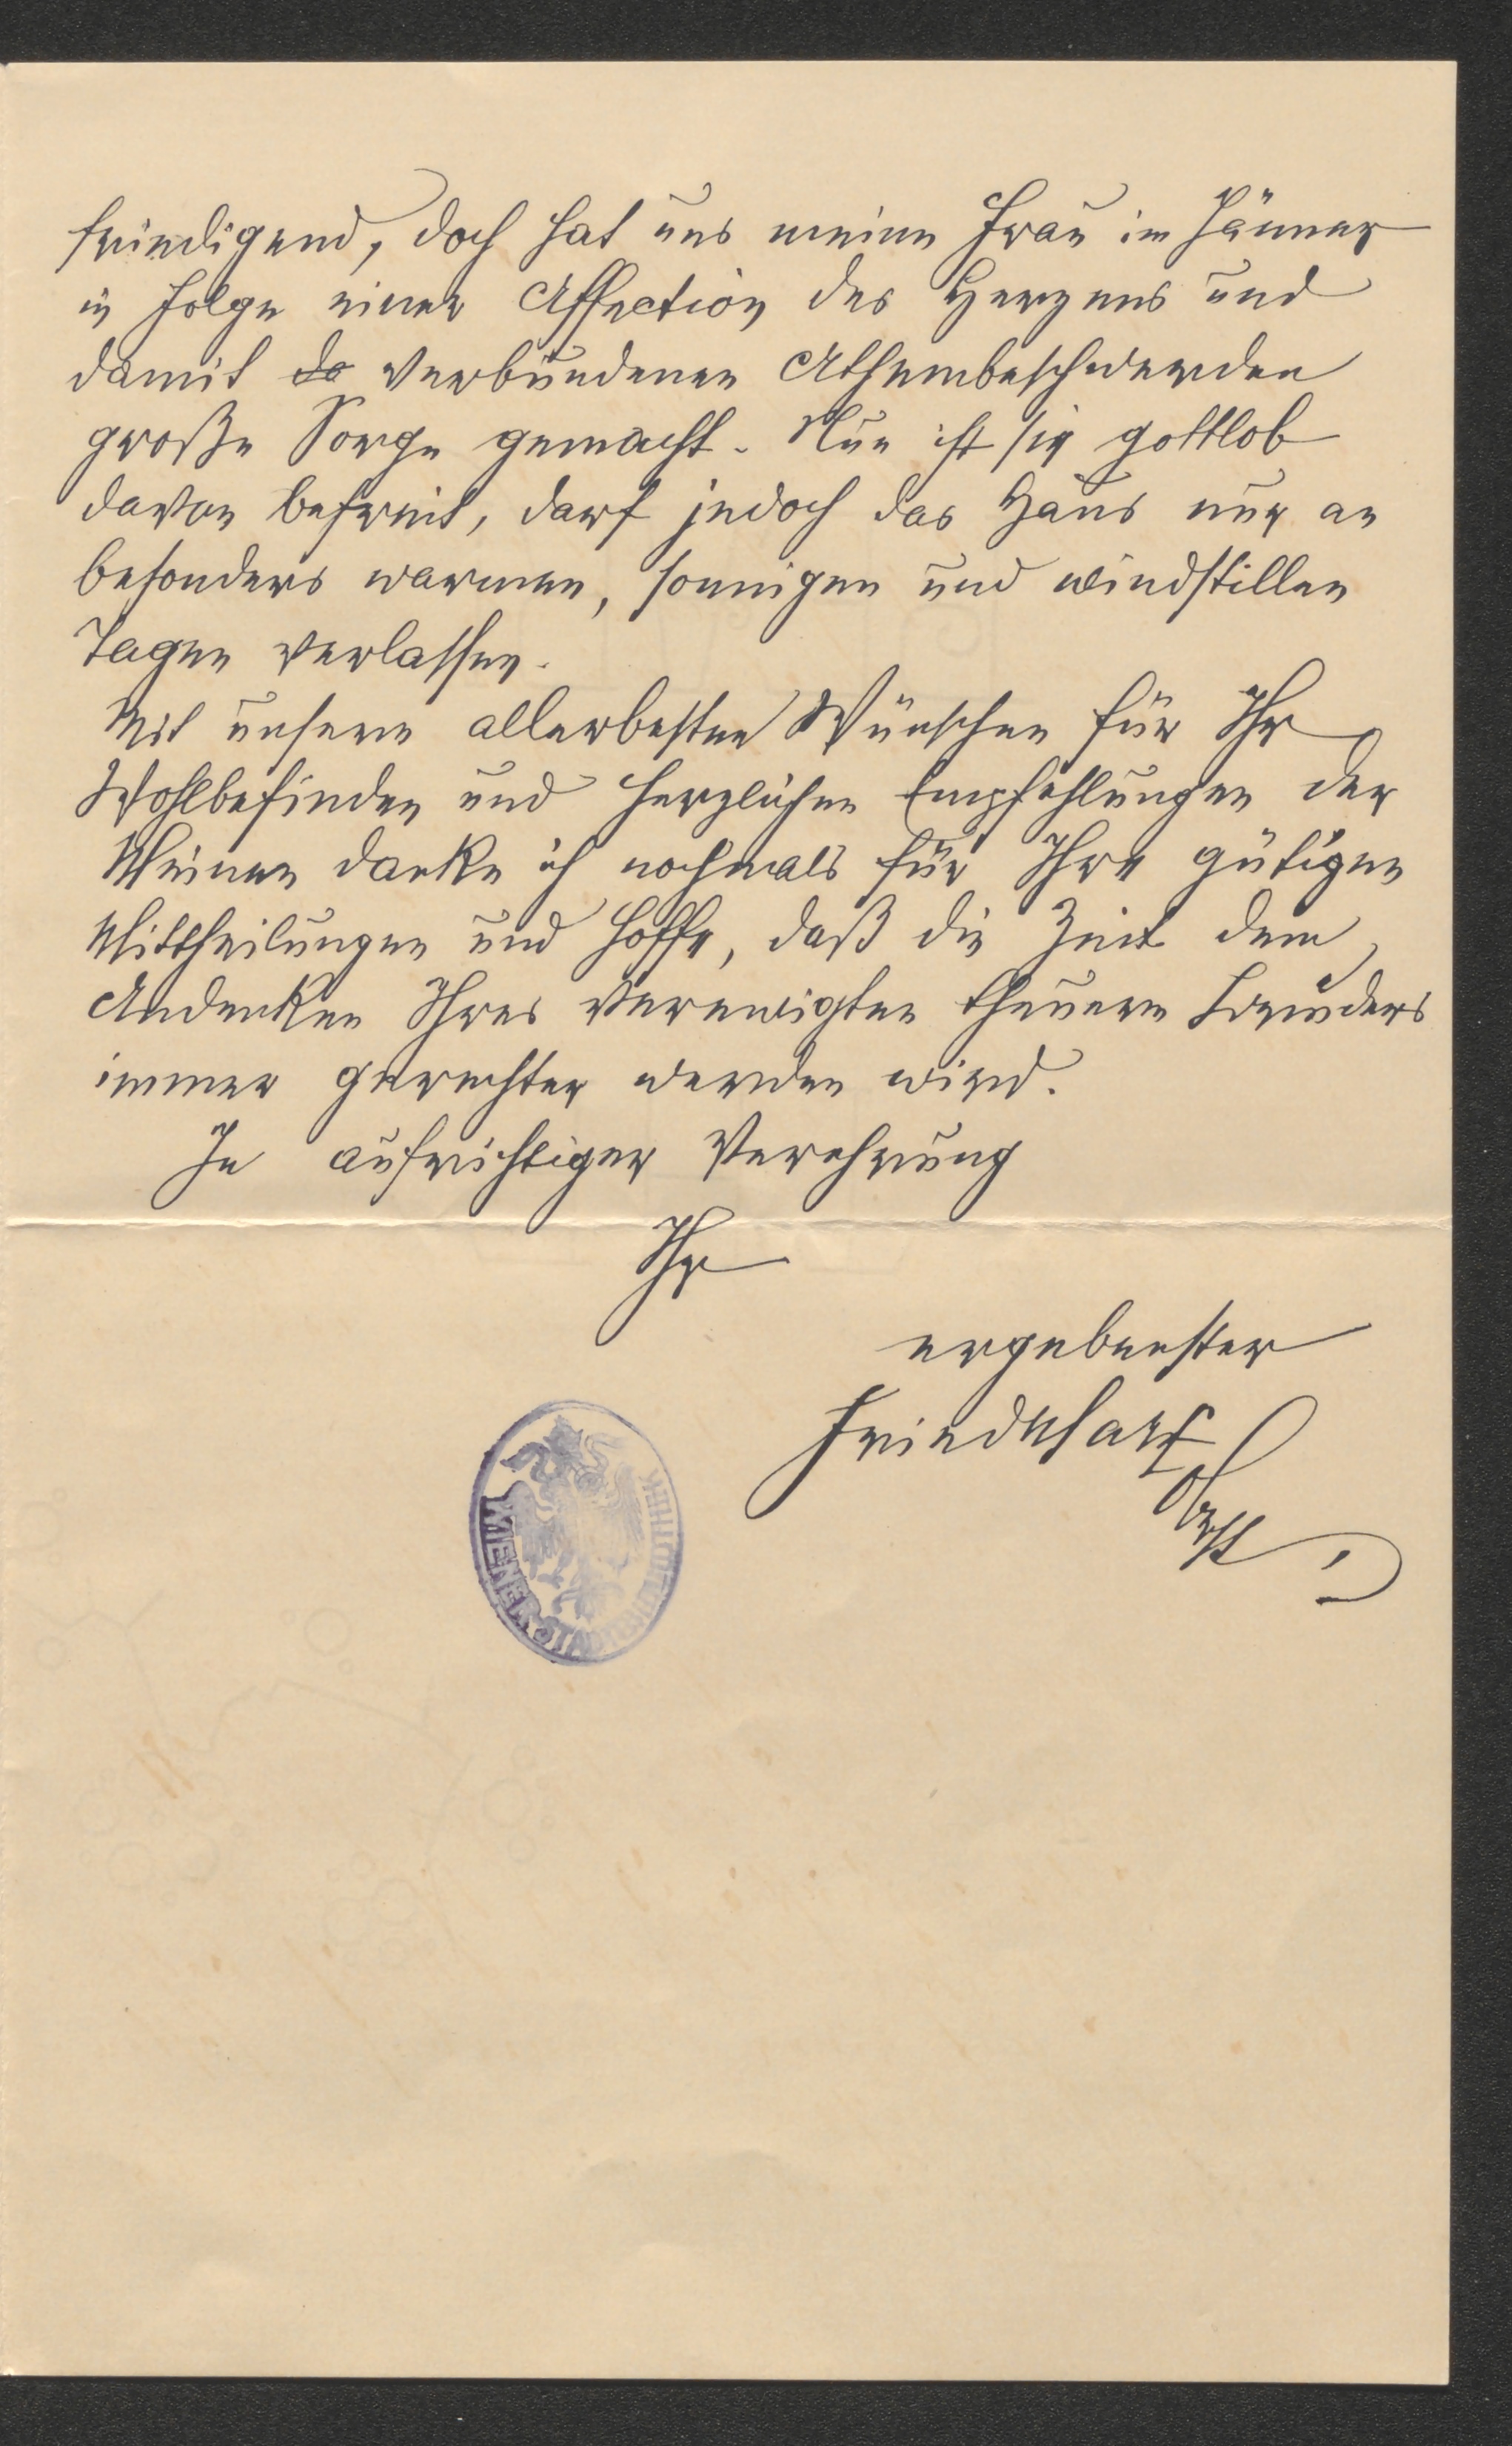 friedigend, doch hat uns meine Frau im Jänner
in Folge einer Affection des Herzens und
damit da verbundenen Athembeschwerden
große Sorge gemacht. Nun ist sie gottlob
davon befreit, darf jedoch das Haus nur an
besonders warmen, sonnigen und windstillen
Tagen verlassen.
Mit unsern allerbesten Wünschen für Ihr
Wohlbefinden und herzlichen Empfehlungen der
Meinen danke ich nochmals für Ihre gütigen
Mittheilungen und hoffe, daß die Zeit dem
Andenken Ihres verewigten theuern Bruders
immer gerechter werden wird.
In aufrichtiger Verehrung
Ihr
ergebenster
Ob
WIENER STADTBIBLIOTHEK